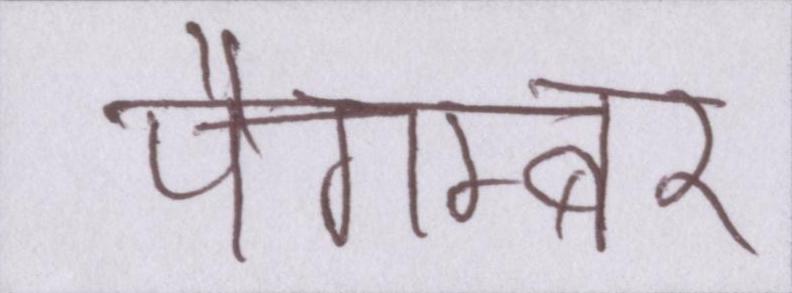 पैगम्बर